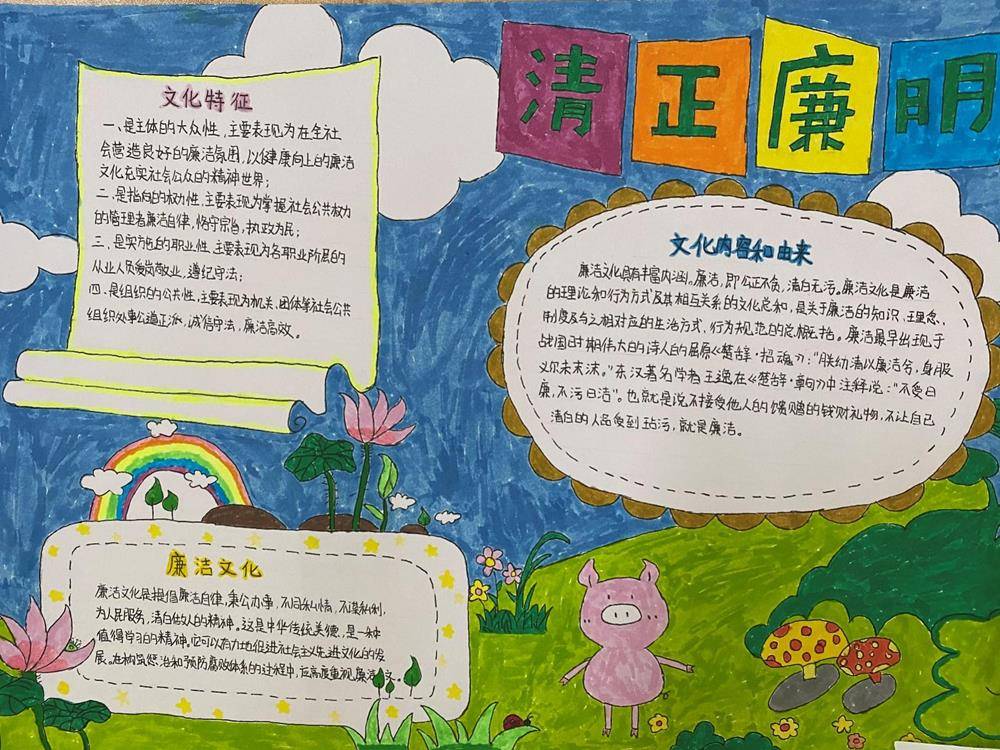 清正廉明
文化特征
一、是主体的大众性，主要表现为在全社
会营造良好的廉洁氛围，以健康向上的廉洁
文化充实社会公众的精神世界；
二、是指向的权力性，主要表现为掌握社会公共权力
的管理者廉洁自律，恪守宗旨，执政为民；
三、是实施的职业性，主要表现为各职业所属的
从业人员爱岗敬业，遵纪守法；
四、是组织的公共性，主要表现为机关、团体等社会公共
组织处事公道正派，诚信守法，廉洁高效。
文化内容和由来
廉洁文化具有丰富内涵。廉洁，即公正不贪，清白无污。廉洁文化是廉洁
的理论和行为方式及其相互关系的文化总和，是关于廉洁的知识、理念、
制度及与之相对应的生活方式，行为规范的总概括。廉洁最早出现于
战国时期伟大的诗人的屈原《楚辞·招魂》："朕幼清以廉洁兮，身服
义尔未沫。"东汉著名学者王逸在《楚辞·章句》中注释说："不受曰
廉，不污曰洁"。也就是说不接受他人的馈赠的钱财礼物，不让自己
清白的人品受到玷污，就是廉洁。
廉洁文化
廉洁文化是提倡廉洁自律，秉公办事，不徇私情，不谋私利，
为人民服务，清白做人的精神。这是中华传统美德，是一种
值得学习的精神。它可以有力地促进社会主义先进文化的发
展。在构筑惩治和预防腐败体系的过程中，应高度重视廉洁